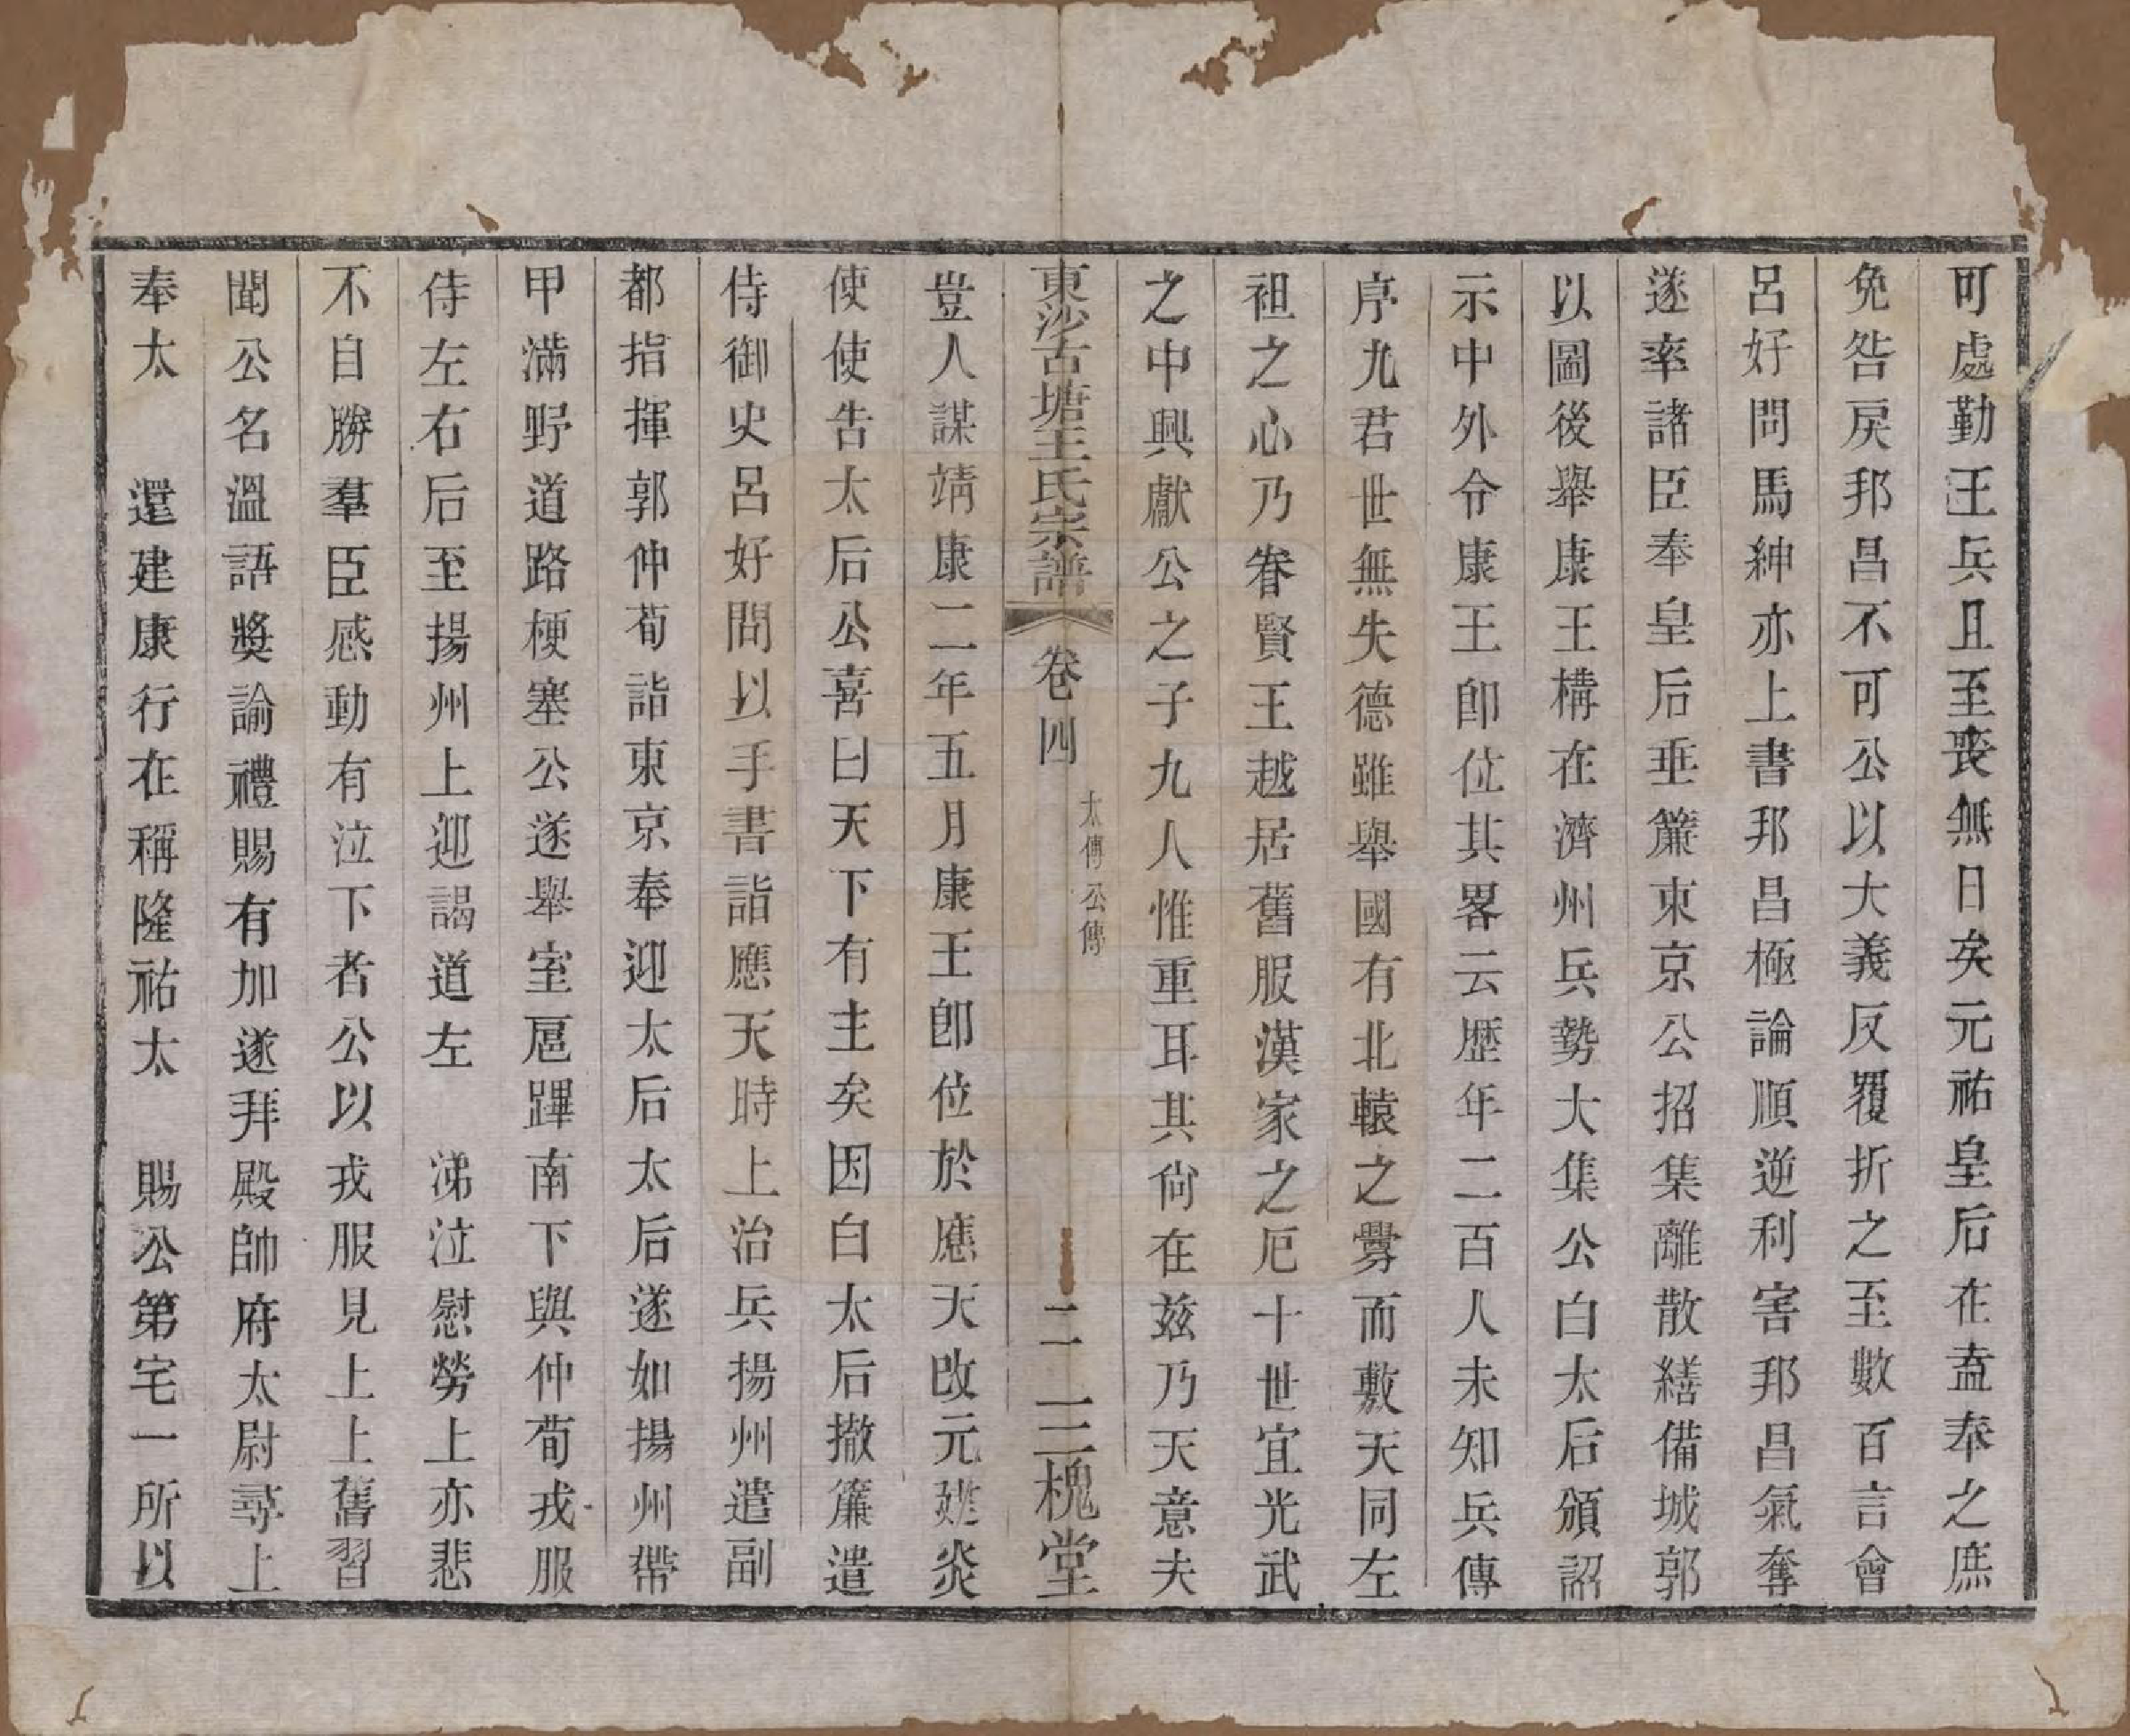 可處勤王兵且至喪無日矣元祐皇后在盍奉之庶
免咎戾邦昌不可公以大義反覆折之至數百言會
呂好問馬紳亦上書邦昌極論順逆利害邦昌氣奪
遂率諸臣奉皇后垂簾東京公招集離散繕備城郭
以圖後舉康王構在濟州兵勢大集公白太后頒詔
示中外令康王卽位其畧云歷年二百人未知兵傳
序九君世無失德雖舉國有北轅之釁而敷天同左
袒之心乃眷賢王越居舊服漢家之厄十世宜光武
之中興獻公之子九人惟重耳其尙在茲乃天意夫
東沙古塘王氏宗譜 卷四 太傅公傳 二 三槐堂
豈人謀靖康二年五月康王卽位於應天改元建炎
使使告太后公喜曰天下有主矣因白太后撤簾遣
侍御史呂好問以手書詣應天時上治兵揚州遣副
都指揮郭仲荀詣東京奉迎太后太后遂如揚州帶
甲滿野道路梗塞公遂舉室扈蹕南下與仲荀戎服
侍左右后至揚州上迎謁道左 涕泣慰勞上亦悲
不自勝羣臣感動有泣下者公以戎服見上上舊習
聞公名溫語獎諭禮賜有加遂拜殿帥府太尉尋上
奉太 還建康行在稱隆祐太 賜公第宅一所以